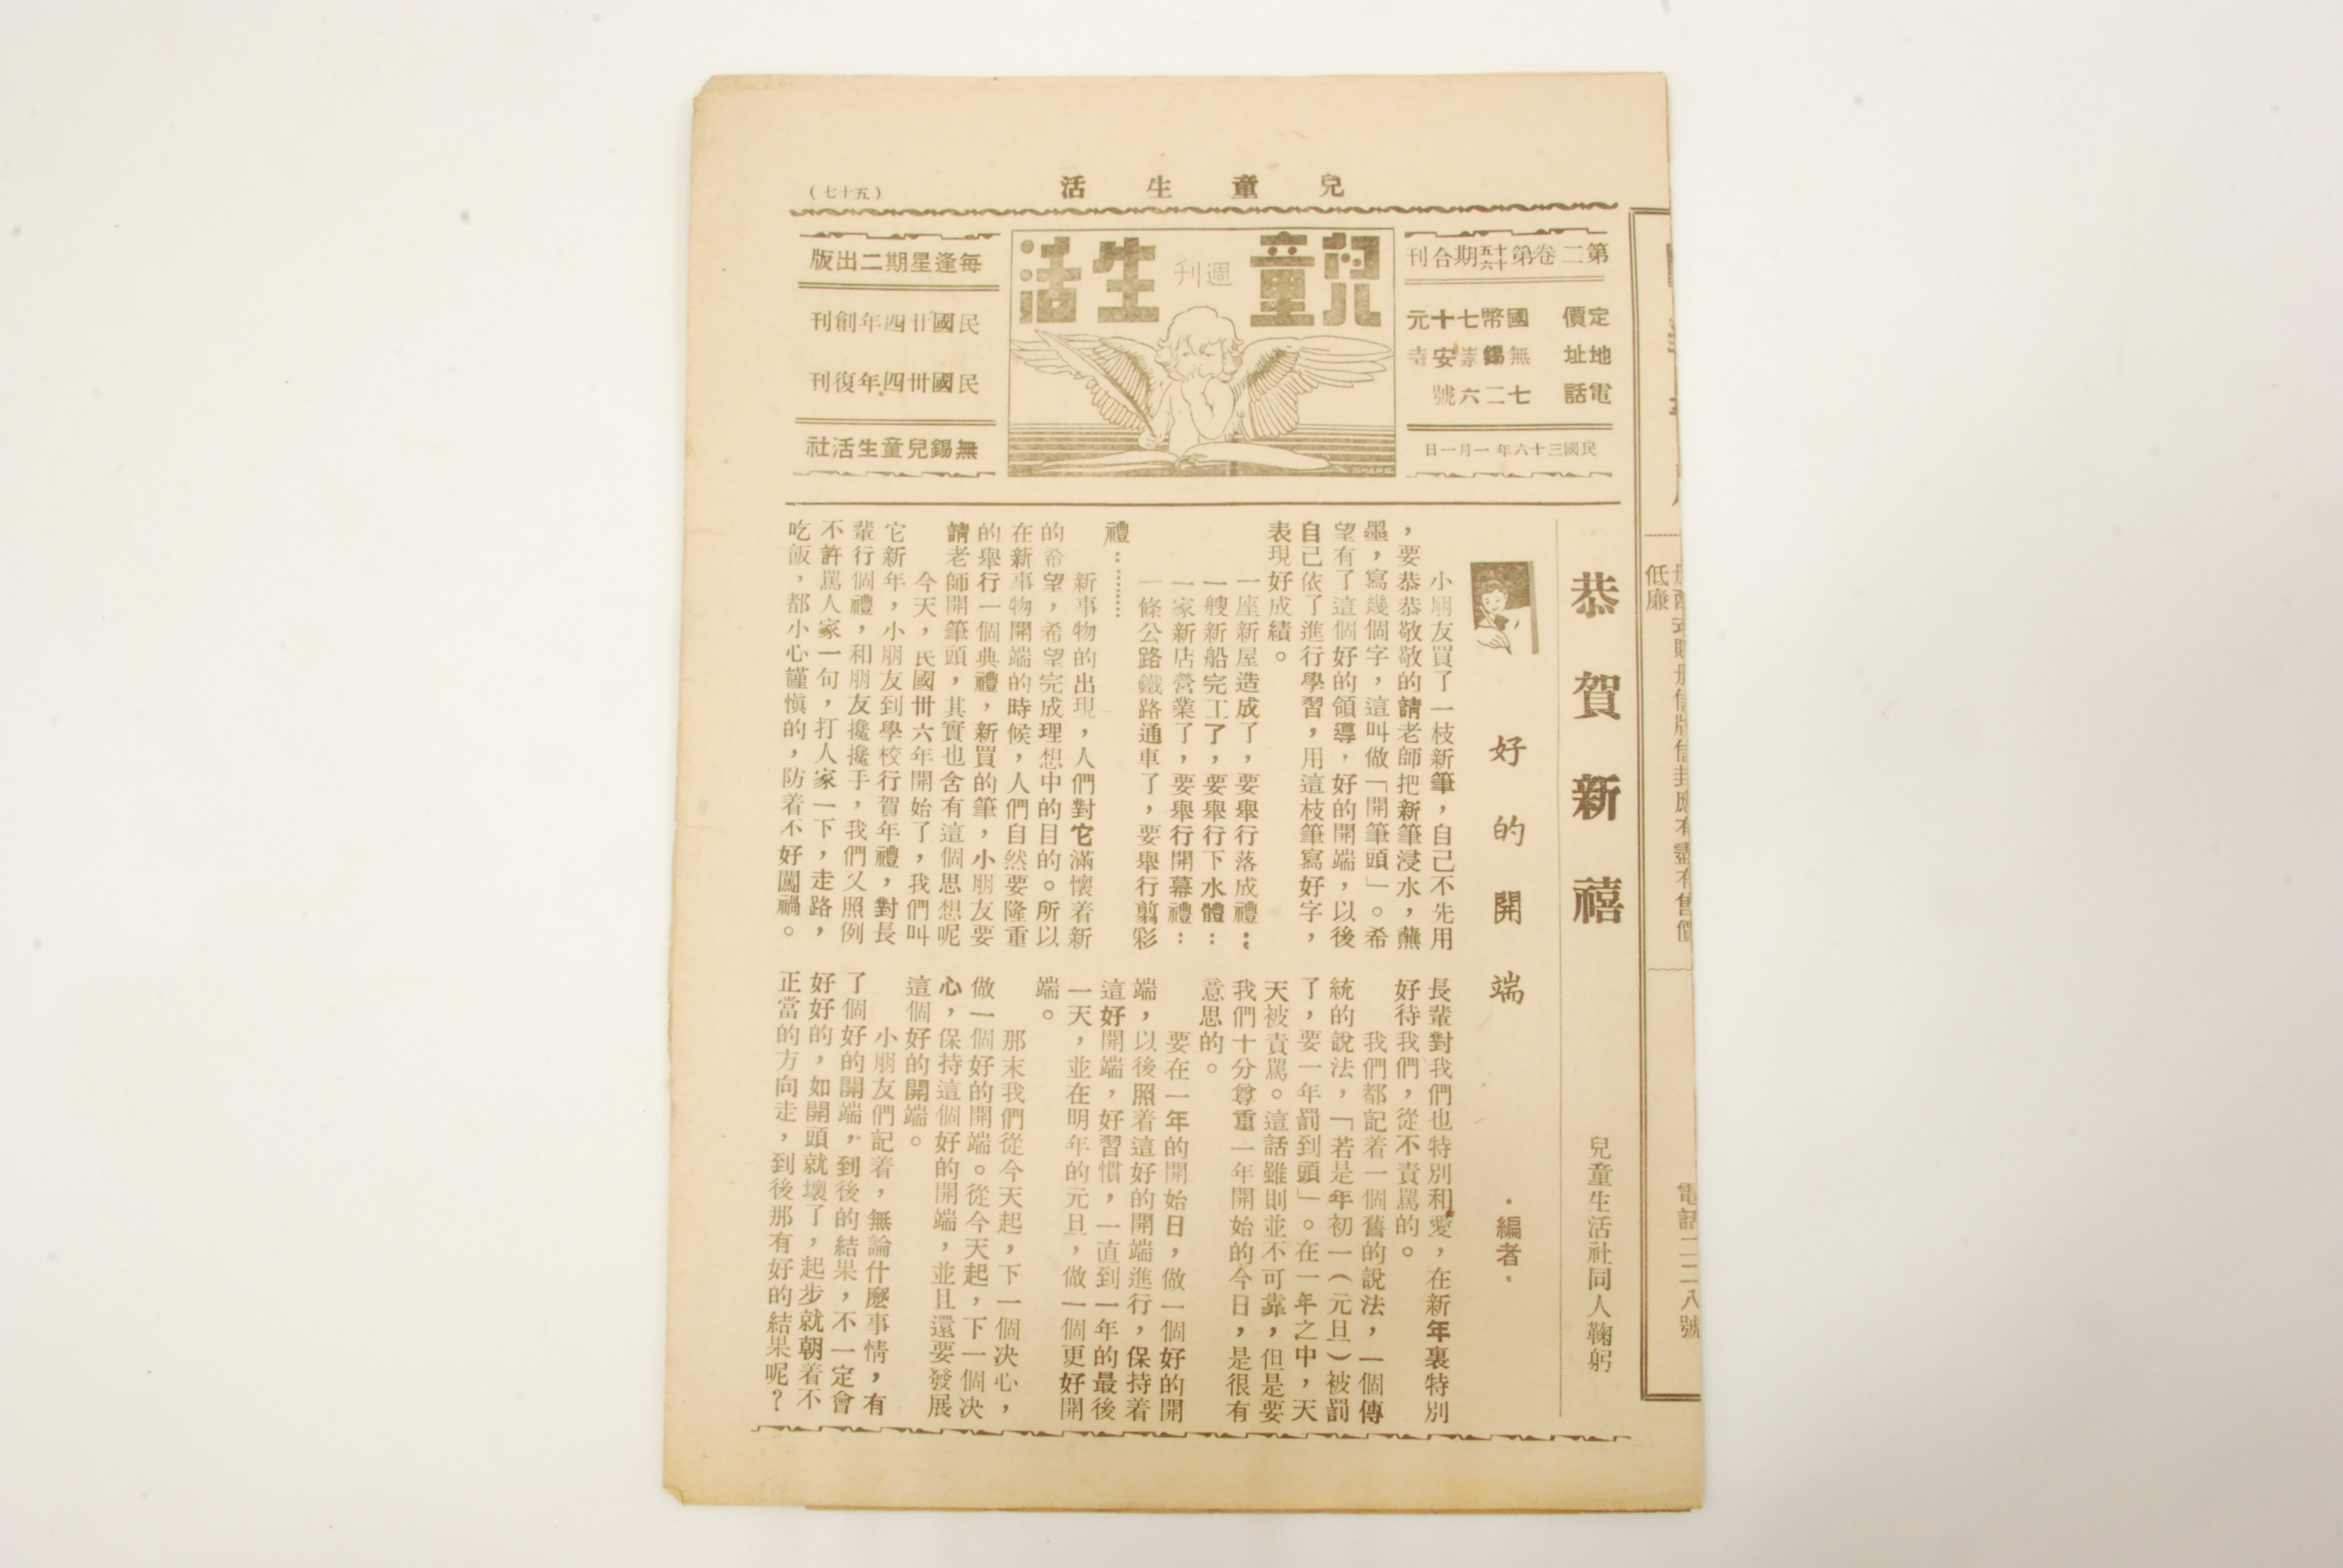 兒童生活
(五十七)
第二卷第十五十六期合刊
定價 國幣七十元
地址 無錫崇安寺
電話 七二六號
民國三十六年一月一日
兒童週刊生活
每逢星期二出版
民國廿四年創刊
民國卅四年復刊
無錫兒童生活社
低廉
電話二二八號
恭賀新禧
兒童生活社同人鞠躬
好的開端
·編者·
小朋友買了一枝新筆，自己不先用
，要恭恭敬敬的請老師把新筆浸水，蘸
墨，寫幾個字，這叫做「開筆頭」。希
望有了這個好的領導，好的開端，以後
自己依了進行學習，用這枝筆寫好字，
表現好成績。
一座新屋造成了，要舉行落成禮：
一艘新船完工了，要舉行下水體：
一家新店營業了，要舉行開幕禮：
一條公路鐵路通車了，要舉行剪彩
禮：………
新事物的出現，人們對它滿懷着新
的希望，希望完成理想中的目的。所以
在新事物開端的時候，人們自然要隆重
的舉行一個典禮，新買的筆，小朋友要
請老師開筆頭，其實也含有這個思想呢
今天，民國卅六年開始了，我們叫
它新年，小朋友到學校行賀年禮，對長
輩行個禮，和朋友攙攙手，我們又照例
不許罵人家一句，打人家一下，走路，
吃飯，都小心謹慎的，防着不好闖禍。
長輩對我們也特別和愛，在新年裏特別
好待我們，從不責罵的。
我們都記着一個舊的說法，一個傳
統的說法，「若是年初一（元旦）被罰
了，要一年罰到頭」。在一年之中，天
天被責罵。這話雖則並不可靠，但是要
我們十分尊重一年開始的今日，是很有
意思的。
要在一年的開始日，做一個好的開
端，以後照着這好的開端進行，保持着
這好開端，好習慣，一直到一年的最後
一天，並在明年的元旦，做一個更好開
端。
那末我們從今天起，下一個决心，
做一個好的開端。從今天起，下一個决
心，保持這個好的開端，並且還要發展
這個好的開端。
小朋友們記着，無論什麼事情，有
了個好的開端，到後的結果，不一定會
好好的，如開頭就壞了，起步就朝着不
正當的方向走，到後那有好的結果呢？